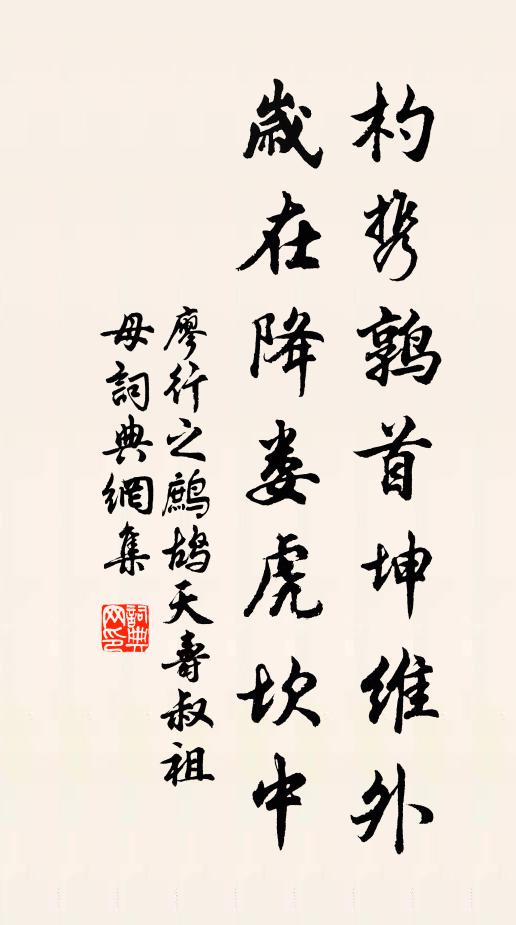 杓携鶉首坤維外
歲在降婁虎坎中
廖行之鷓鴣天壽叔祖
母詞典網集
詞典網印